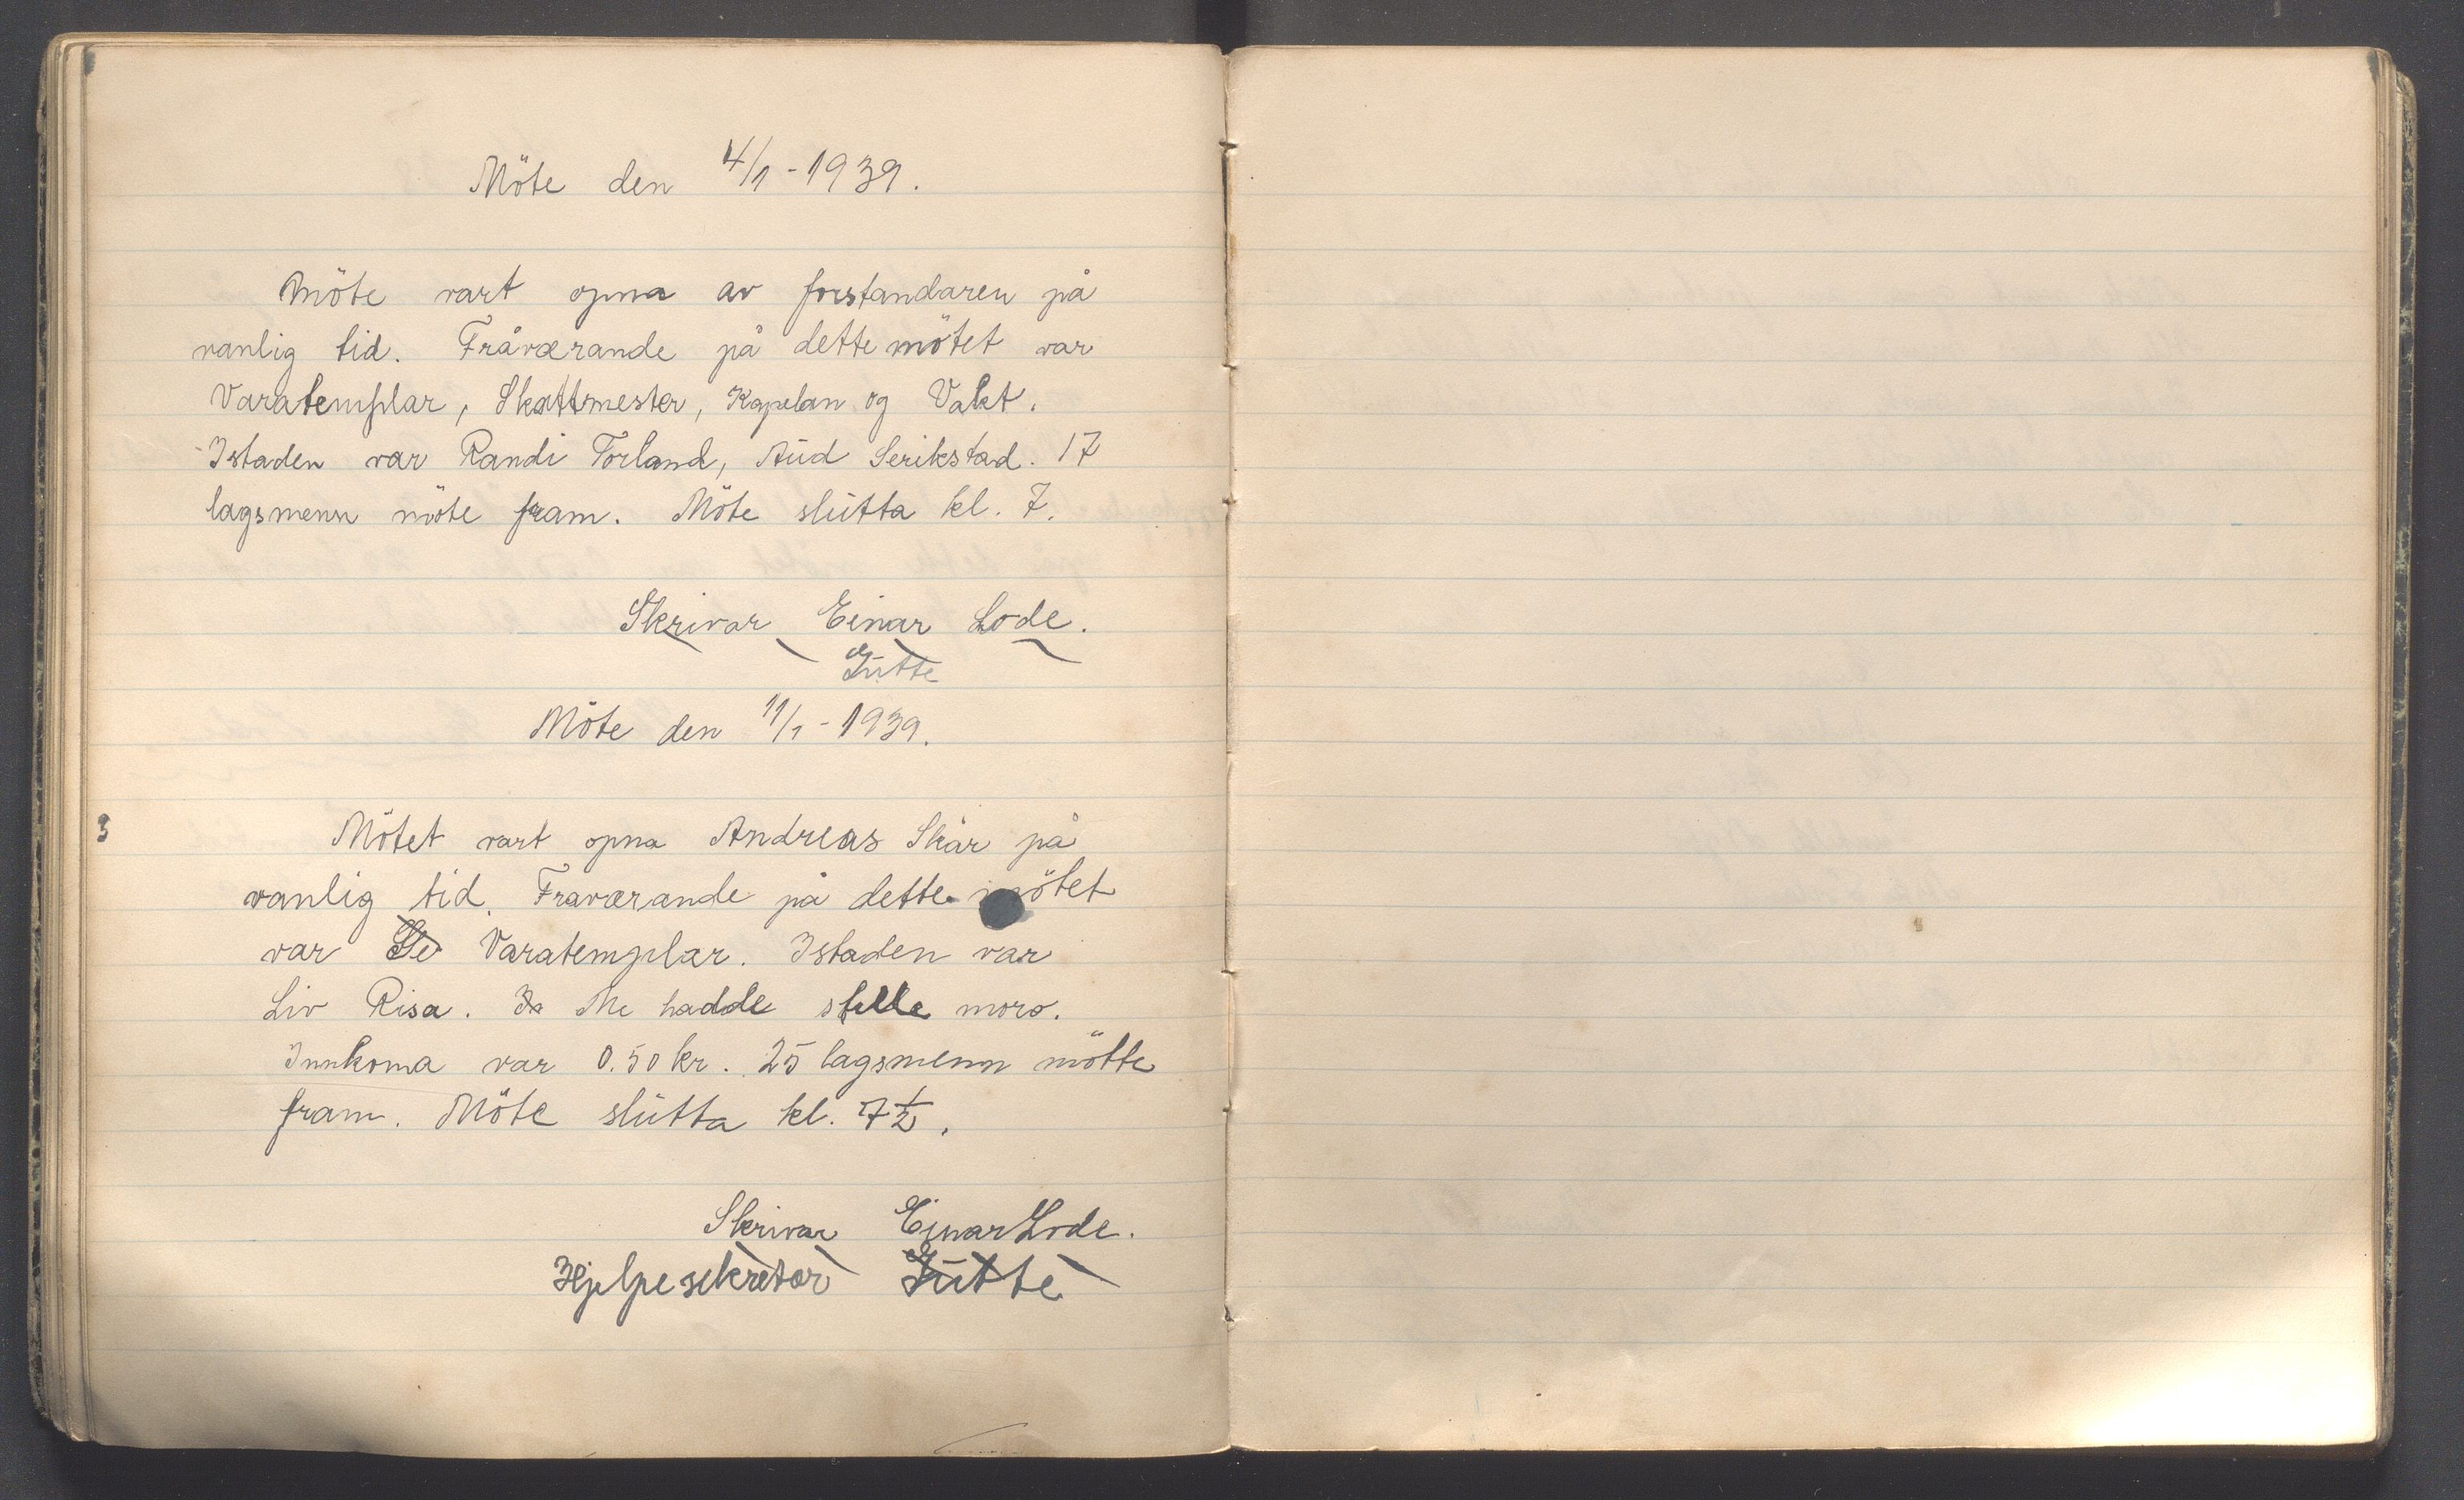 Möte den 4/1 - 1939.
Möte vart opna av forstandaren på
vanlig tid. Fråværande på dette mötet var
Varatemplar, Skattmester, Kapelan og Vakt.
Istaden var Randi Torland, Aud Serikstad. 17
lagsmenn möte fram. Möte slutta kl. 7.
Skrivar Einar Lode.
Tutte
Möte den 11/1 - 1939.
3
Mötet vart opna Andreas Skår på
vanlig tid. Fraværande på dette mötet
var Se Varatemplar. Istaden var
Liv Risa. Me hadde stelle moro.
Innkoma var 0.50 kr. 25 lagsmenn mötte
fram. Möte slutta kl. 7 1/2.
Skrivar Einar Lode.
Hjelpesekretær Tutte